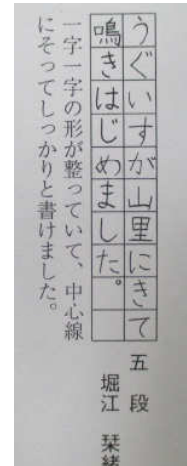 うぐいすが山里にきて
鳴きはじめました。
五段
堀江 栞緒
一字一字の形が整っていて、中心線
にそってしっかりと書けました。